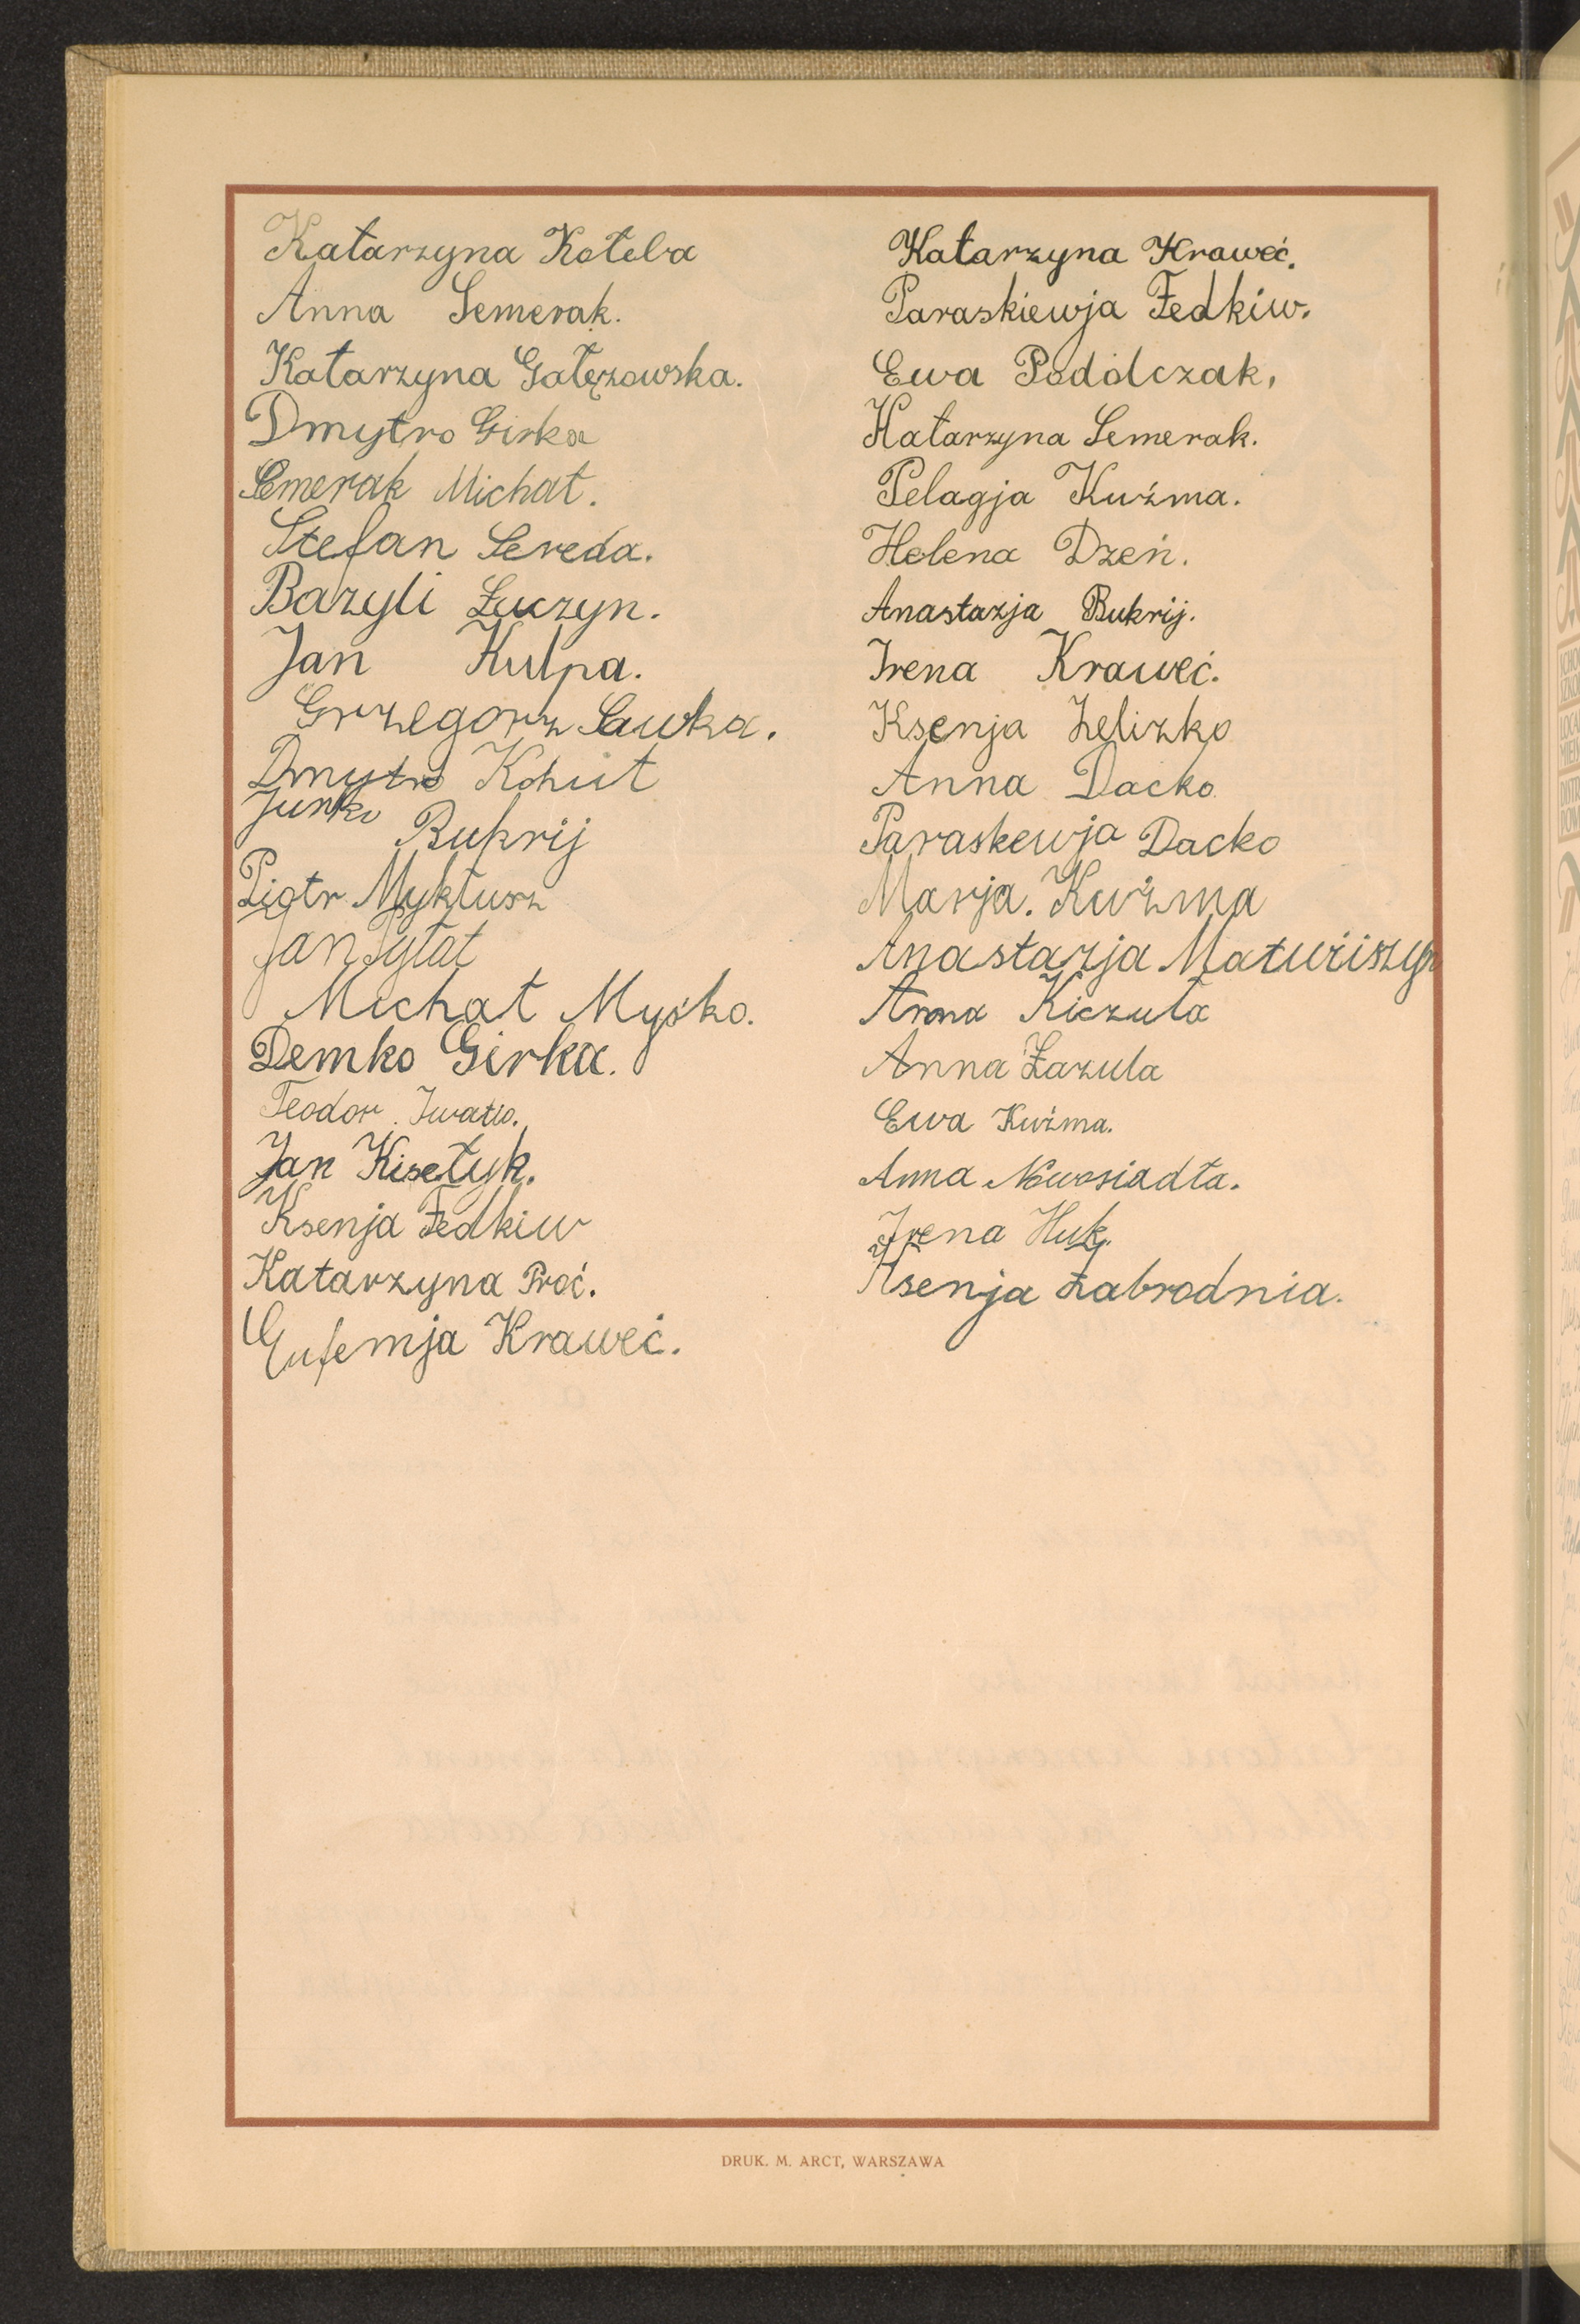 Katarzyna Koteba
Anna Semerak.
Katarzyna Gałęzowska.
Dmytro Girka
Semerak Michał.
Stefan Sereda.
Bazyli Łuczyn.
Jan Kulpa.
Grzegorz Sawka.
Dmytro Kohut
Junko Bukrij
Piotr Myktusz
Jan Pytat
Michał Myśko.
Demko Girka.
Teodor Iwatio.
Jan Kisełyk.
Ksenja Fedkiw
Katarzyna Proć.
Eufemja Kraweć.
Katarzyna Kraweć.
Paraskiewja Fedkiw.
Ewa Podolczak,
Katarzyna Semerak.
Pelagja Kuźma.
Helena Dzeń.
Anastazja Bukrij.
Irena Kraweć.
Ksenja Żelizko
Anna Dacko
Paraskewja Dacko
Marja. Kuźma
Anastazja Matwiiszyn
Anna Kiczuła
Anna Zazula
Ewa Kuźma.
Anna Nowosiadła.
Irena Huk.
Ksenja Zabrodnia.
DRUK. M. ARCT, WARSZAWA